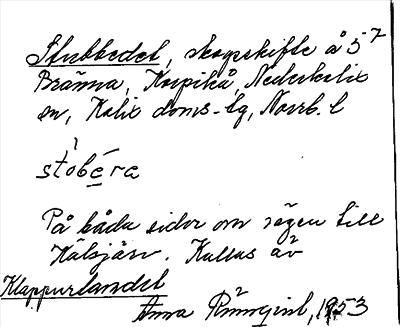 Stubbedel, skogsskifte å 5⁷
Bränna, Korpikå, Nederkalix
sn, Kalix doms-lg, Norrb. l
stobéra
På båda sidor om vägen till
Kälsjärv. Kallas äv
Klappurlandet
Anna Rönnqvist, 1953